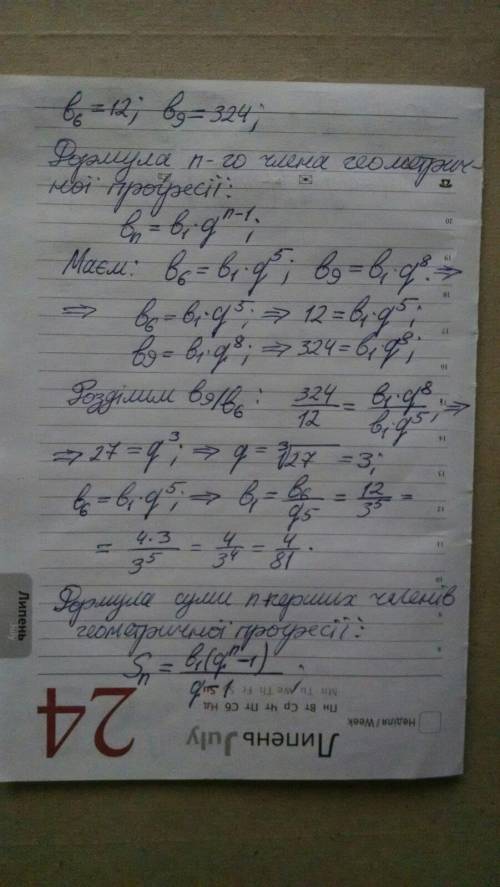 b₆ = 12; b₉ = 324;
Формула n-го члена геометрич-
ної прогресії:
bₙ = b₁·qⁿ⁻¹;
Маєм: b₆ = b₁·q⁵; b₉ = b₁·q⁸. ⇒
⇒ b₆ = b₁·q⁵; ⇒ 12 = b₁·q⁵;
b₉ = b₁·q⁸; ⇒ 324 = b₁·q⁸;
Розділим b₉/b₆: 324/12 = b₁·q⁸/b₁·q⁵; ⇒
⇒ 27 = q³; ⇒ q = ∛27 = 3;
b₆ = b₁·q⁵; ⇒ b₁ = b₆/q⁵ = 12/3⁵ =
= 4·3/3⁵ = 4/3⁴ = 4/81.
Формула суми n перших членів
геометричної прогресії:
Sₙ = b₁(qⁿ-1)/q-1.
24
Липень July
Mn Tu We Th Fr S Su
Пн Вт Ср Чт Пт Сб Нд
Неділя / Week
Липень
July